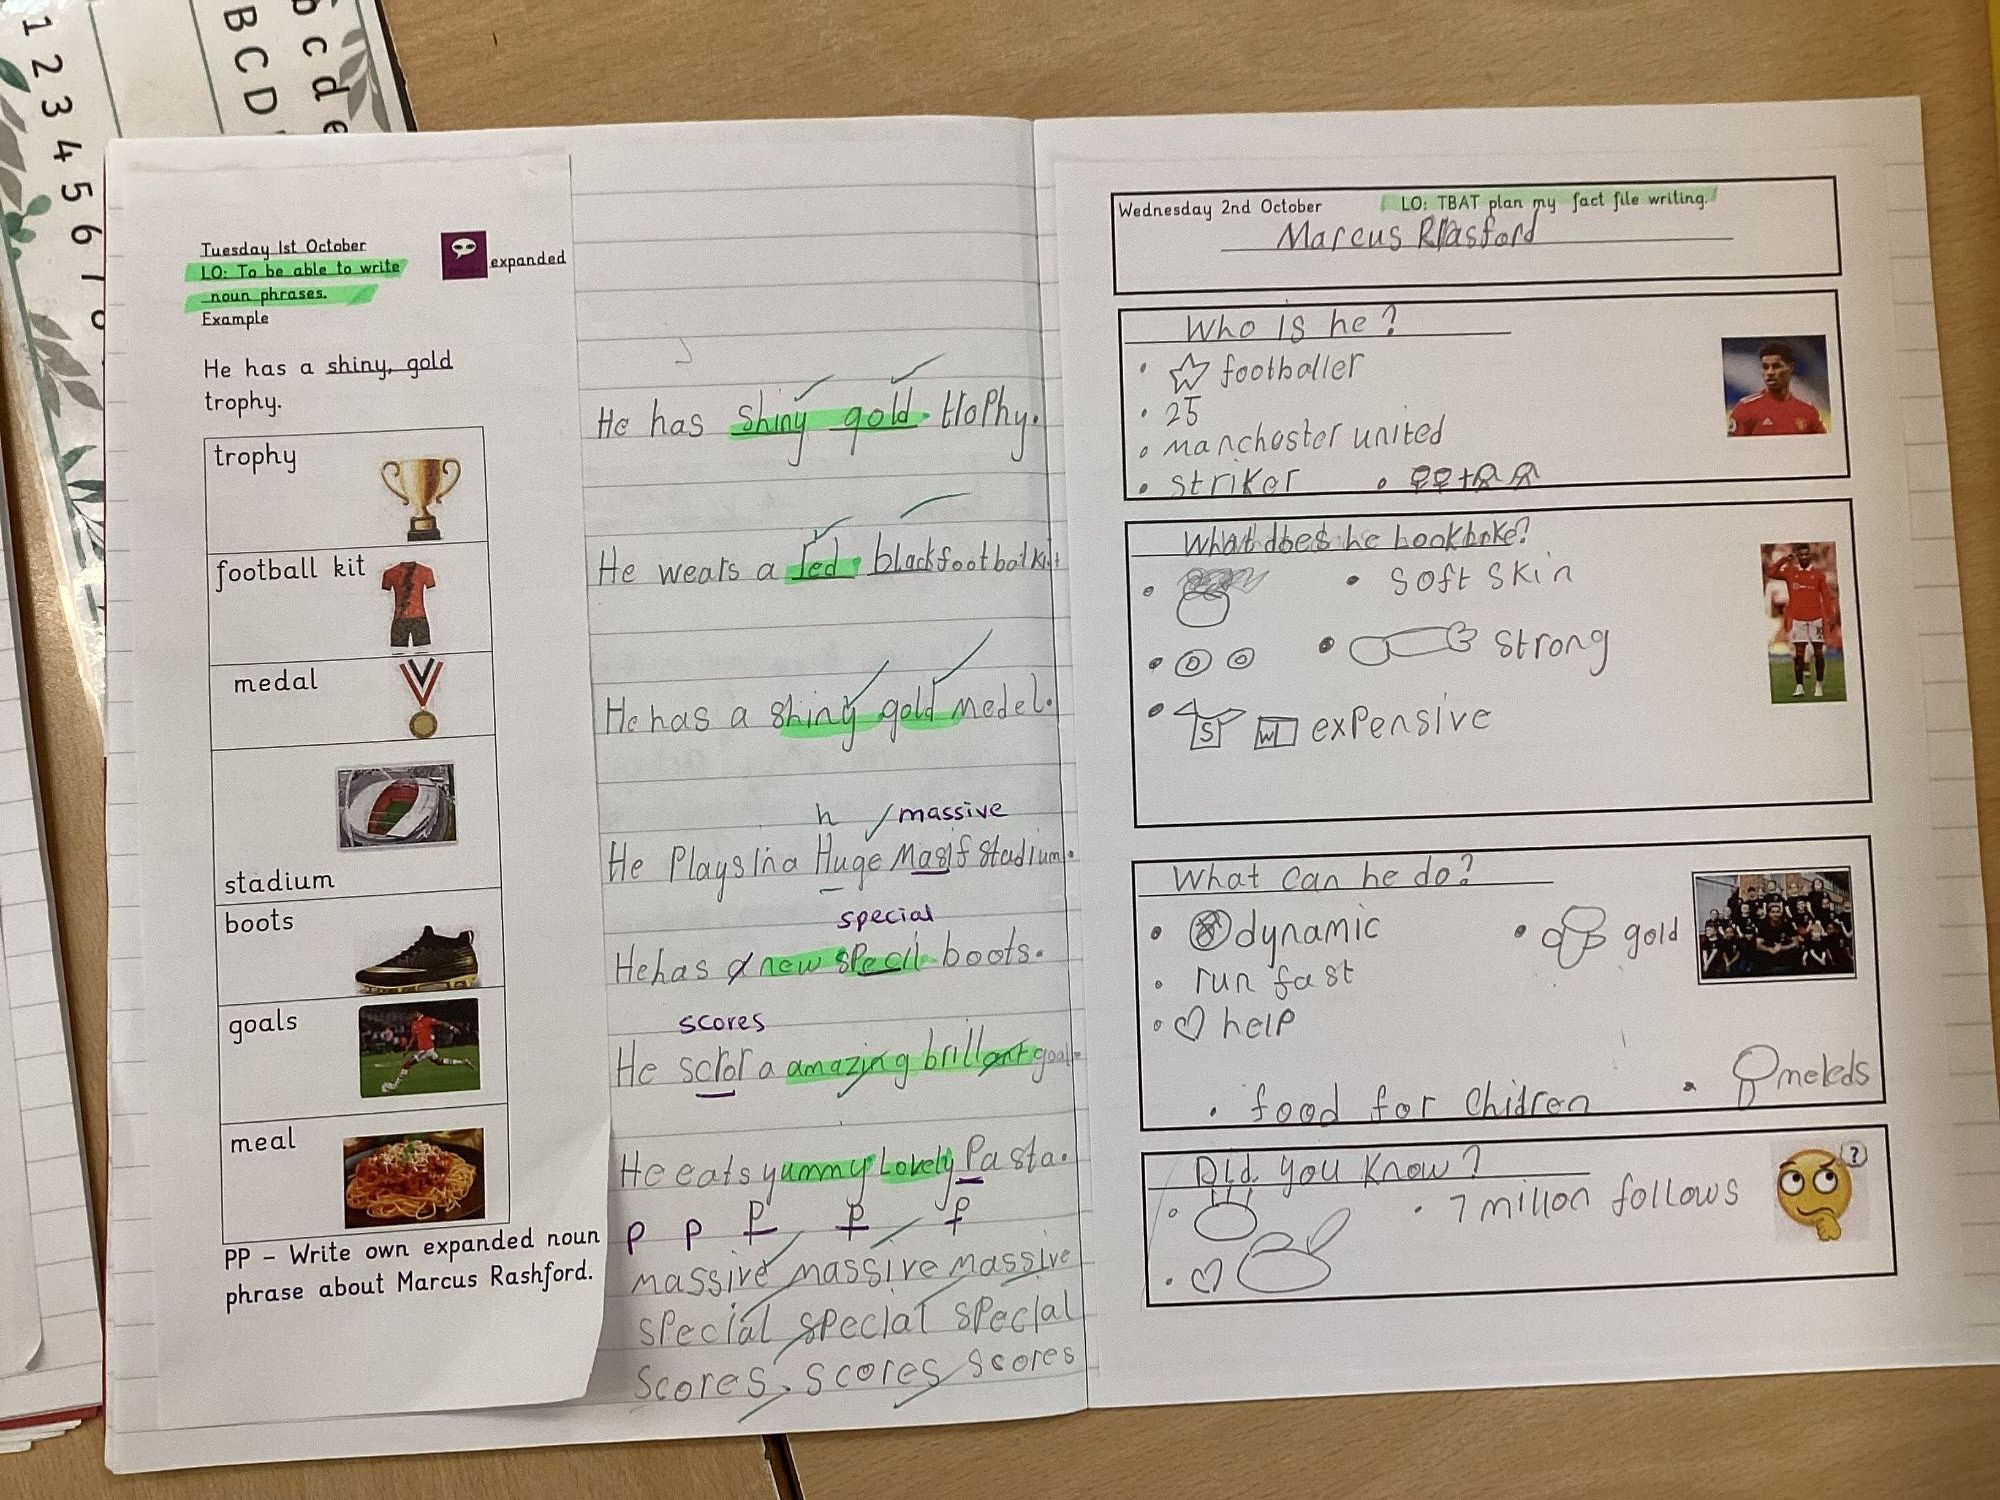 1 2 3 4 5 6
B C D
b c d e
Tuesday 1st October
LO: To be able to write expanded
noun phrases.
Example
He has a shiny, gold
trophy.
trophy
football kit
medal
stadium
boots
goals
meal
PP – Write own expanded noun
phrase about Marcus Rashford.
He has shiny gold trophy.
He wears a red, black footbal kit
He has a shiny gold medel.
h massive
He Plays in a Huge Masif Stadium.
special
He has a new specil boots.
scores
He scror a amazing brillant goal
He eats yummy Lovely Pasta.
p p p p p
massive massive massive
special special special
scores, scores scores
Wednesday 2nd October LO: TBAT plan my fact file writing.
Marcus
Who is he?
footballer
25
manchester united
striker
What does he
soft skin
strong
S W expensive
What can he do?
dynamic
gold
run fast
help
food for Chidren
meleds
Did you know?
7 millon follows
?